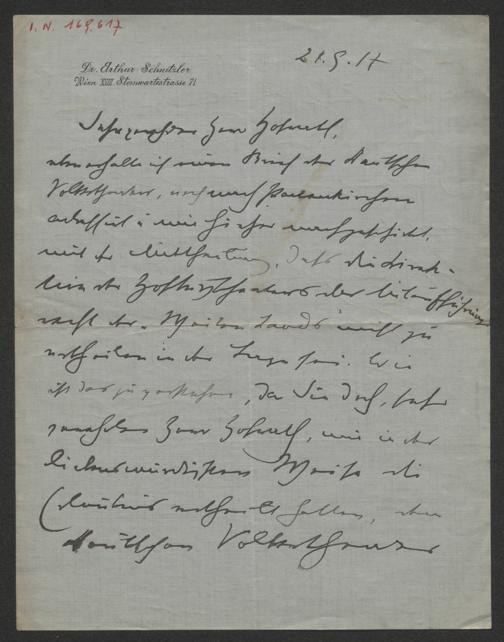 I. N. 169.617
21.9.17
Dr. Arthur Schnitzler
Wien XVIII. Sternwartestrasse 71
Sehr geehrter Herr Hofrath,
eben erhalte ich einen Brief des Deutschen
Volkstheaters, noch nach Partenkirchen
adressirt u mir hieher nachgeschickt,
mit der Mittheilung, dass die Direk-
tion des Hofburgtheaters das Aufführungs
recht des "Weiten Lands" nicht zu
ertheilen in der Lage sei. Wie
ist das zu verstehen, da Sie doch, sehr
geehrter Herr Hofrath, mir in der
liebenswürdigsten Weise die
Erlaubnis ertheilt hatten, dem
Deutschen Volkstheater